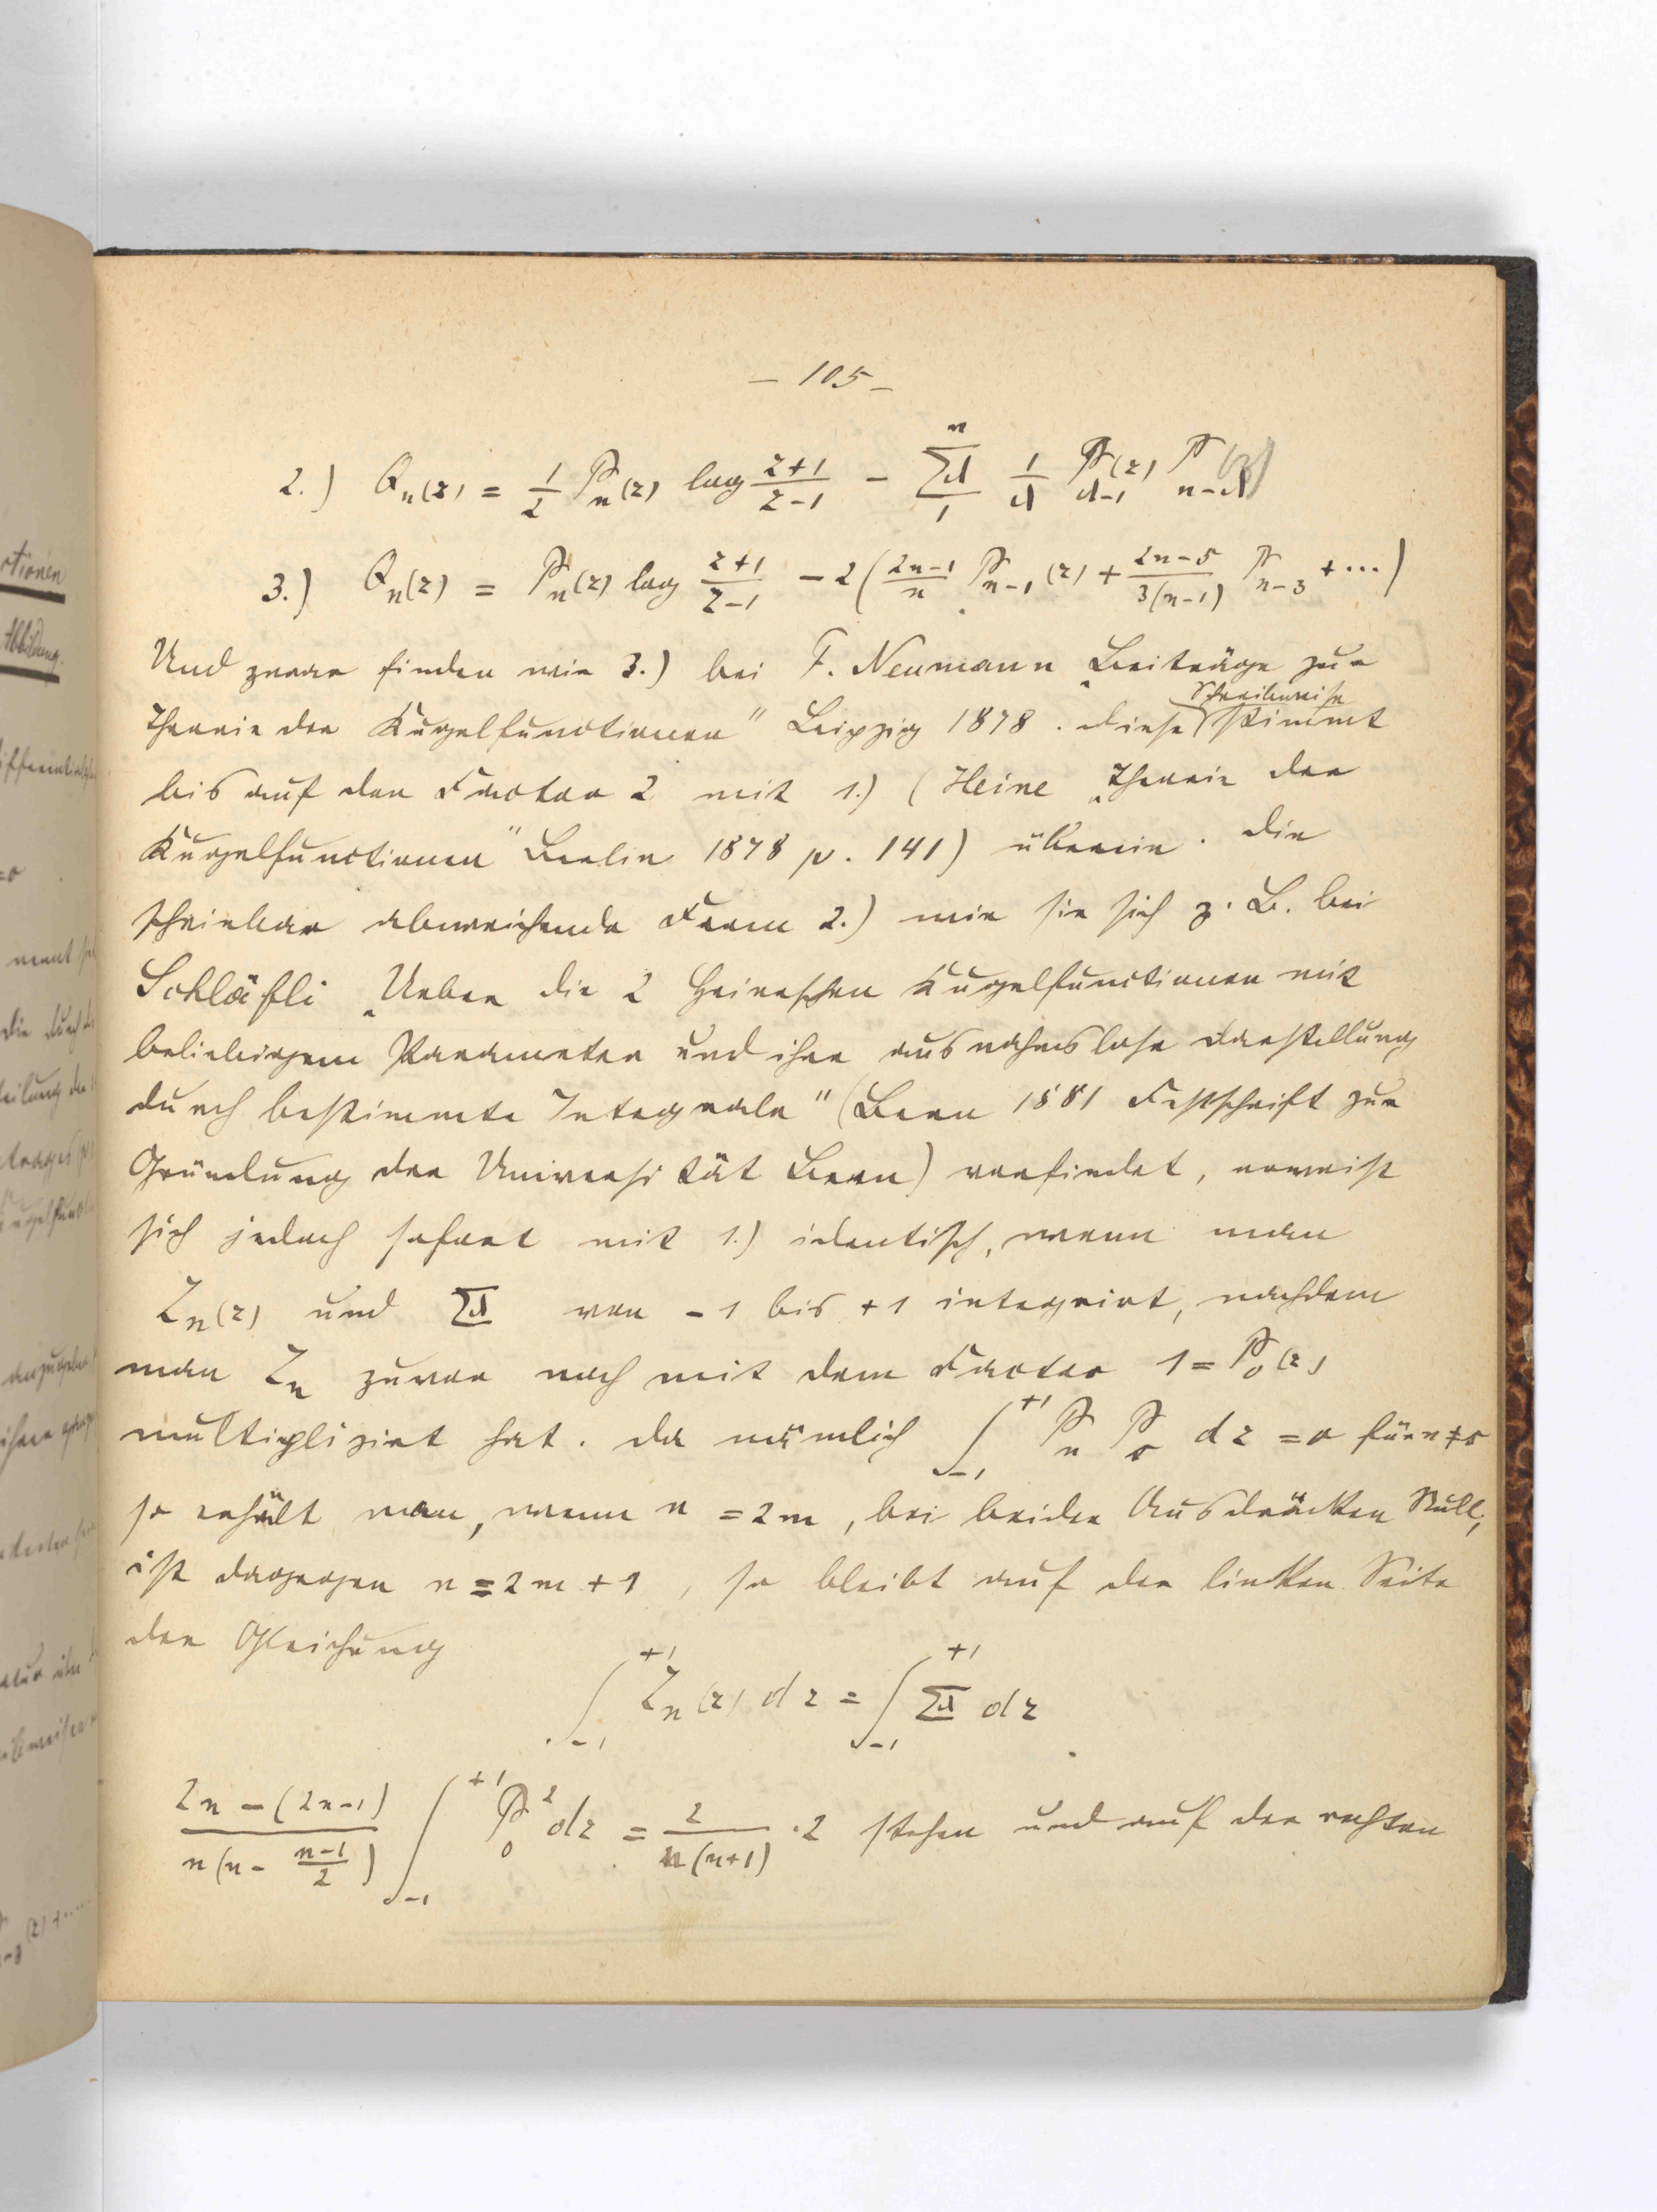 – 105 –
2.) Qn(z) = 1/2 Pn(z) log (z+1)/(z-1) - Σd_1^n 1/d P_{d-1}(z) P_{n-d}(z)
3.) Qn(z) = Pn(z) log (z+1)/(z-1) - 2((2n-1)/n P_{n-1}(z) + (2n-5)/(3(n-1)) P_{n-3} + ···)
Und zwar finden wir 3.) bei F. Neumann „Beiträge zur
Schreibweise
Theorie der Kugelfunctionen" Leipzig 1878. Diese stimmt
bis auf den Factor 2 mit 1.) (Heine „Theorie der
Kugelfunctionen" Berlin 1878 p. 141) überein. Die
scheinbar abweichende Form 2.) wie sie sich z. B. bei
Schläfli „Ueber die 2 Heineschen Kugelfunctionen mit
beliebigem Parameter und ihre ausnahmslose Darstellung
durch bestimmte Integrale" (Bern 1881 Festschrift zur
Gründung der Universität Bern) vorfindet, erweist
sich jedoch sofort mit 1.) identisch, wenn man
Zn(z) und Σd von -1 bis +1 integrirt, nachdem
man Zn zuvor noch mit dem Factor 1 = P0(z)
multiplizirt hat. Da nämlich ∫_{-1}^{+1} Pn P0 dz = 0 für n ≠ 0
so erhält man, wenn n = 2m, bei beiden Ausdrücken Null;
ist dagegen n = 2m + 1, so bleibt auf der linken Seite
der Gleichung
∫_{-1}^{+1} Zn(z) dz = ∫_{-1}^{+1} Σd dz
(2n-(2n-1))/(n(n-(n-1)/2)) ∫_{-1}^{+1} P0² dz = 2/(n(n+1)) · 2 stehen und auf der rechten